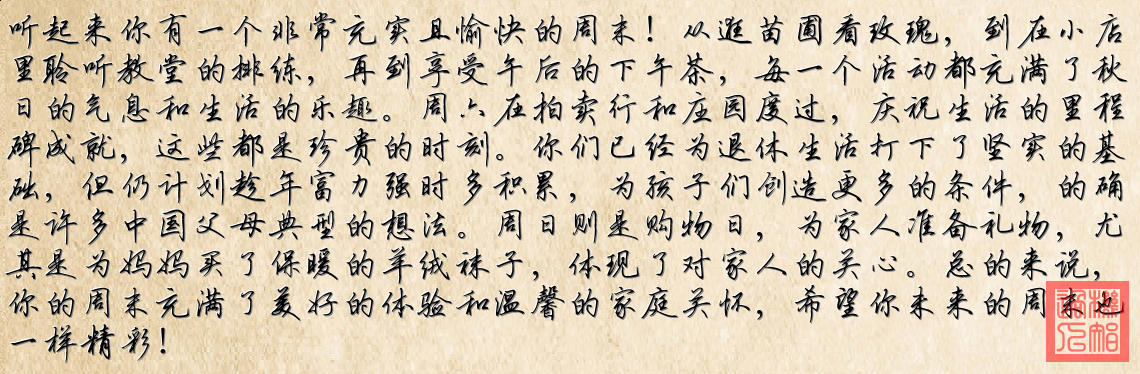 听起来你有一个非常充实且愉快的周末！从逛苗圃看玫瑰，到在小店
里聆听教堂的排练，再到享受午后的下午茶，每一个活动都充满了秋
日的气息和生活的乐趣。周六在拍卖行和庄园度过，庆祝生活的里程
碑成就，这些都是珍贵的时刻。你们已经为退休生活打下了坚实的基
础，但仍计划趁年富力强时多积累，为孩子们创造更多的条件，的确
是许多中国父母典型的想法。周日则是购物日，为家人准备礼物，尤
其是为妈妈买了保暖的羊绒袜子，体现了对家人的关心。总的来说，
你的周末充满了美好的体验和温馨的家庭关怀，希望你未来的周末也
一样精彩！